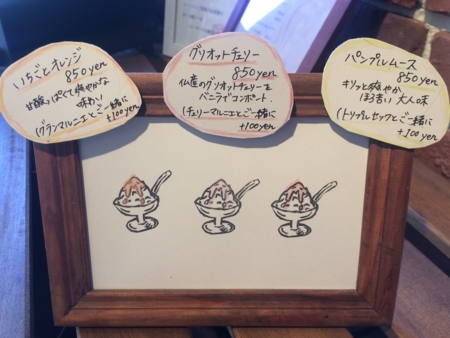 いちごとオレンジ
850yen
甘酸っぱくて爽やかな
味わい
(グランマルニエとご一緒に
+100yen)
グリオットチェリー
850yen
仏産のグリオットチェリーを
バニラでコンポート.
(チェリーマルニエとご一緒に
+100yen)
パンプルムース
850yen
キリッと爽やか
ほろ苦い 大人味
(トリプルセックとご一緒に
+100yen)